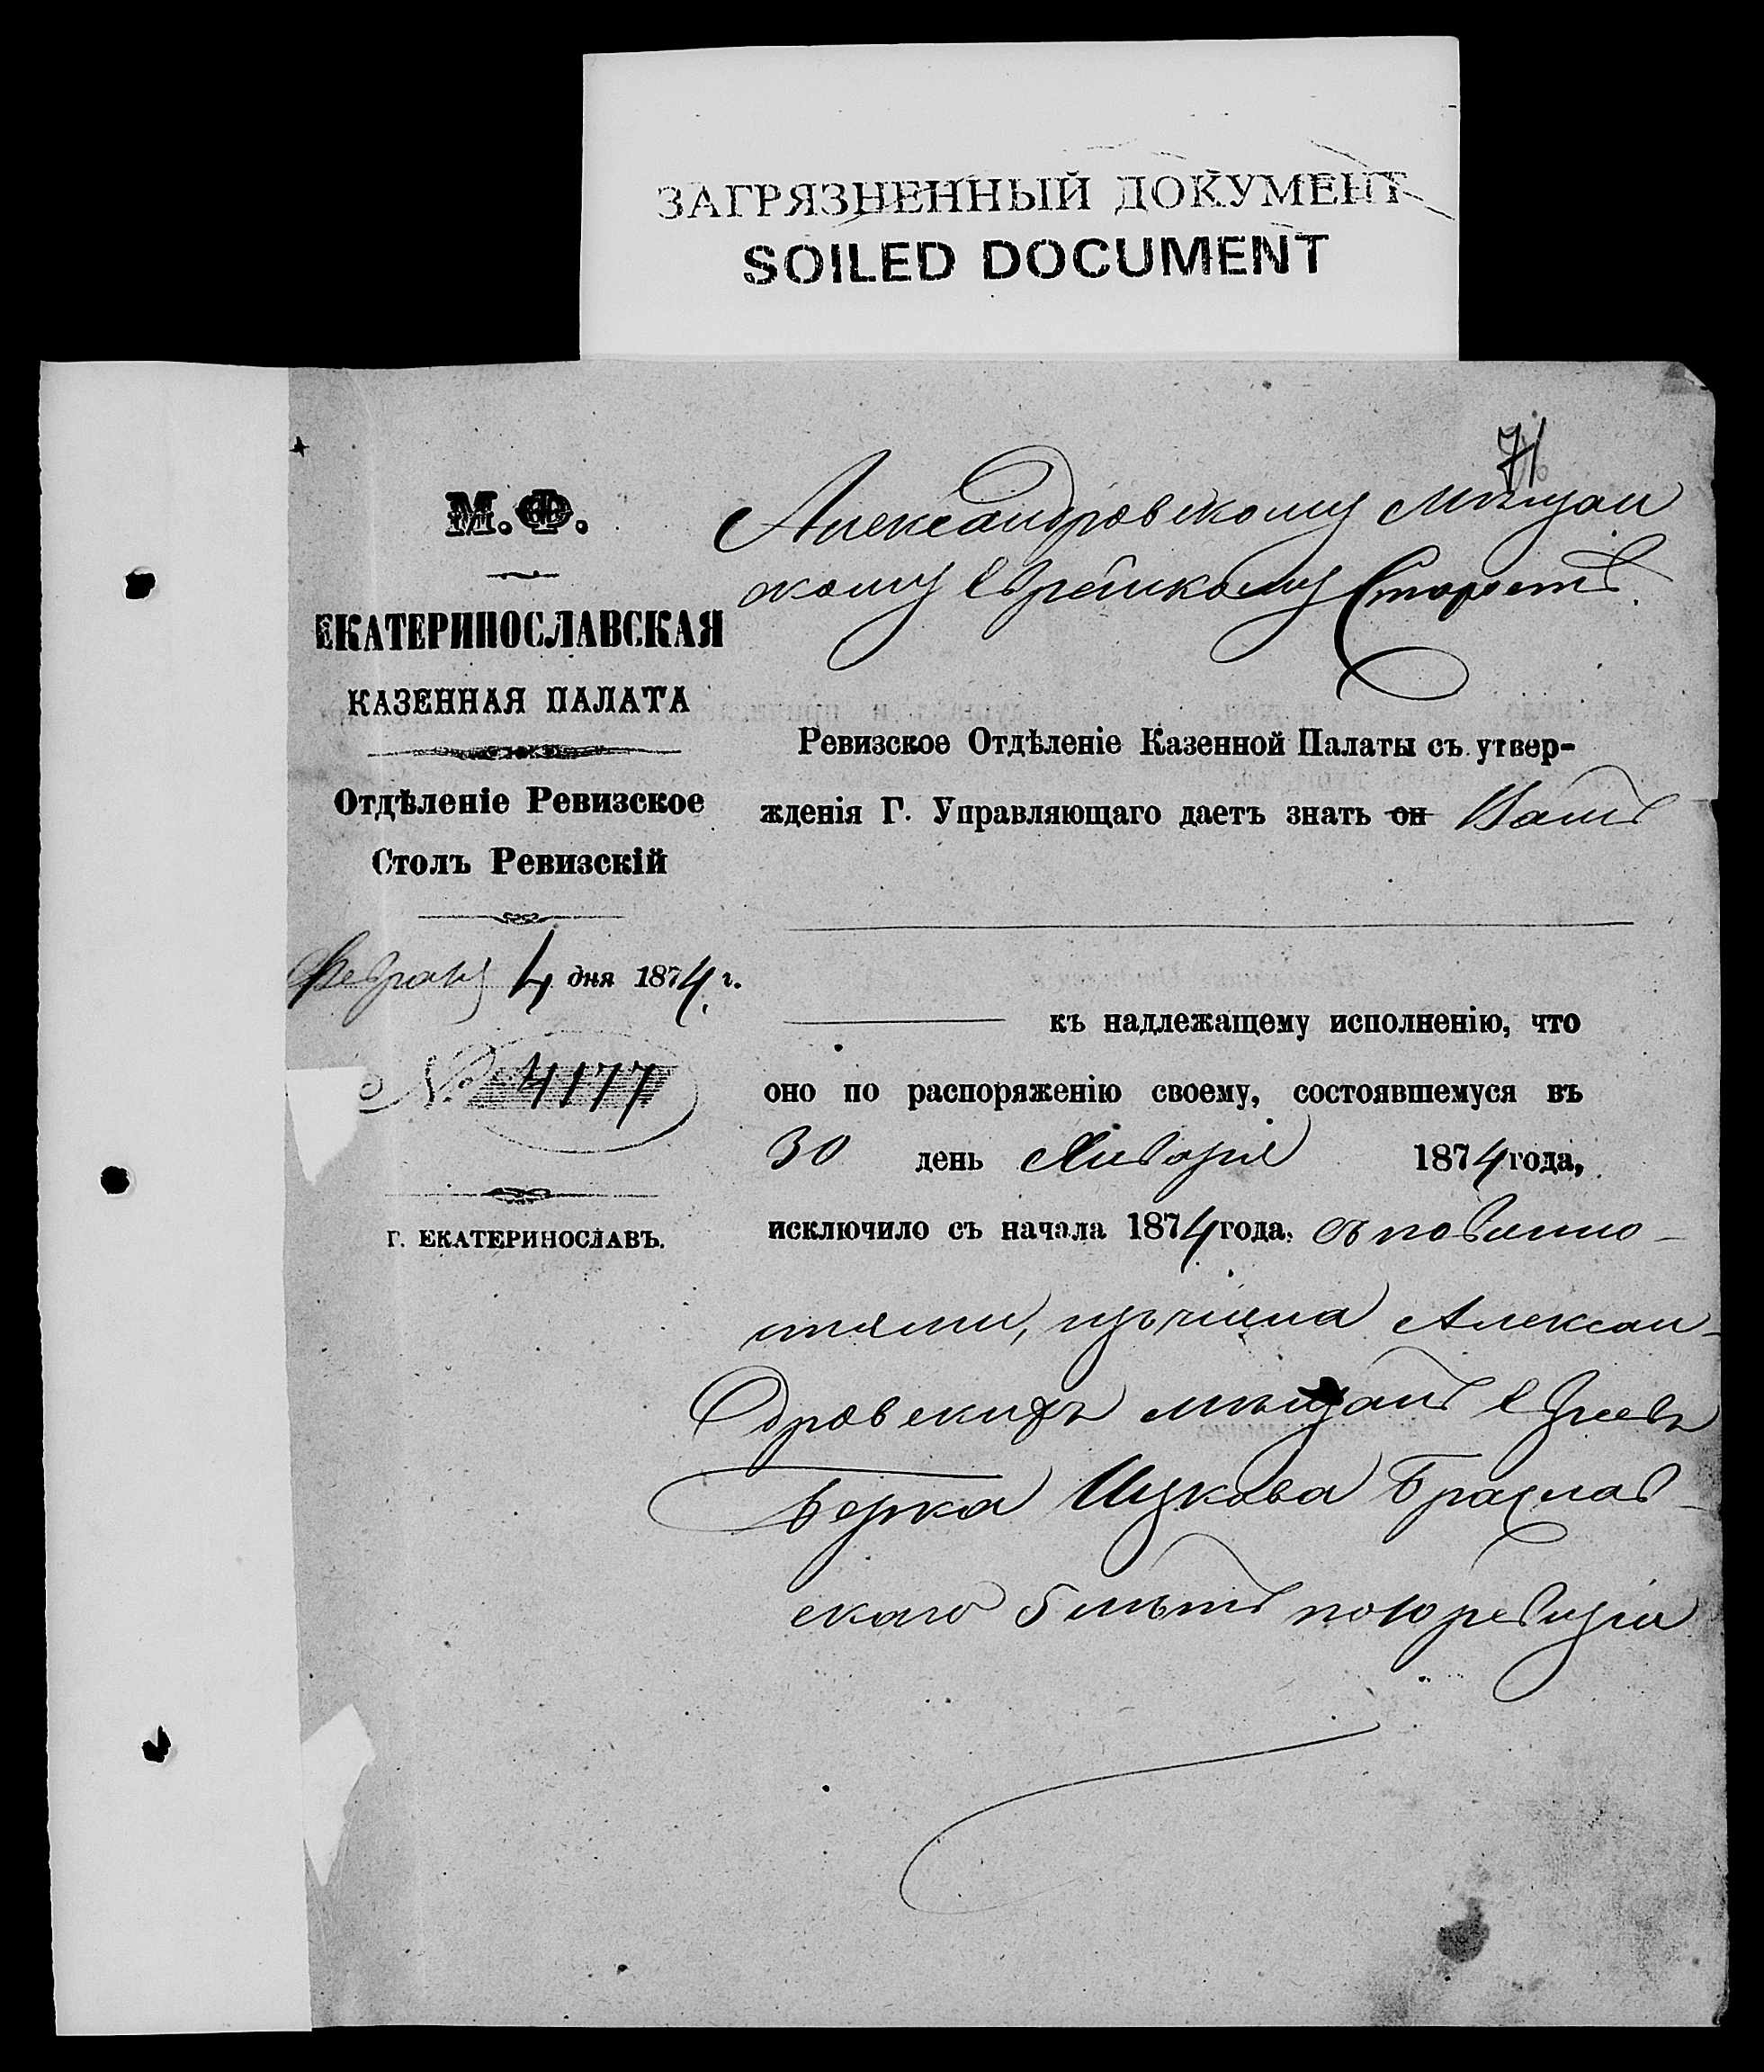 ЗАГРЯЗНЕННЫЙ ДОКУМЕНТ
SOILED DOCUMENT
71
М.Ф.
ЕКАТЕРИНОСЛАВСКАЯ
КАЗЕННАЯ ПАЛАТА
Отдѣленіе Ревизское
Столъ Ревизскій
Февраля 4 дня 1874 г.
№ 4177
Г. ЕКАТЕРИНОСЛАВЪ.
Александровскому Мѣщан
скому Еврейскому Старостѣ.
Ревизское Отдѣленіе Казенной Палаты съ утвер-
жденія Г. Управляющаго даетъ знать он Вамъ
къ надлежащему исполненію, что
оно по распоряженію своему, состоявшемуся въ
30 день Января 1874 года,
исключило съ начала 1874 года, съ повинно-
стями, изъ числа Алексан-
дровскихъ мѣщанъ Евреевъ
Берка Ицкова Брацлав-
скаго 5 лѣтъ по 10 ревизіи